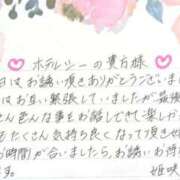 ホテルシーの貴方様
日はお誘い頂きありがとうございま
はお互い緊張していましたが最後
さん色んな事をお話しできて楽し
たくさん気持ち良くなって頂きせ
お時間が合いましたら、お誘いお待
す。
姫咲